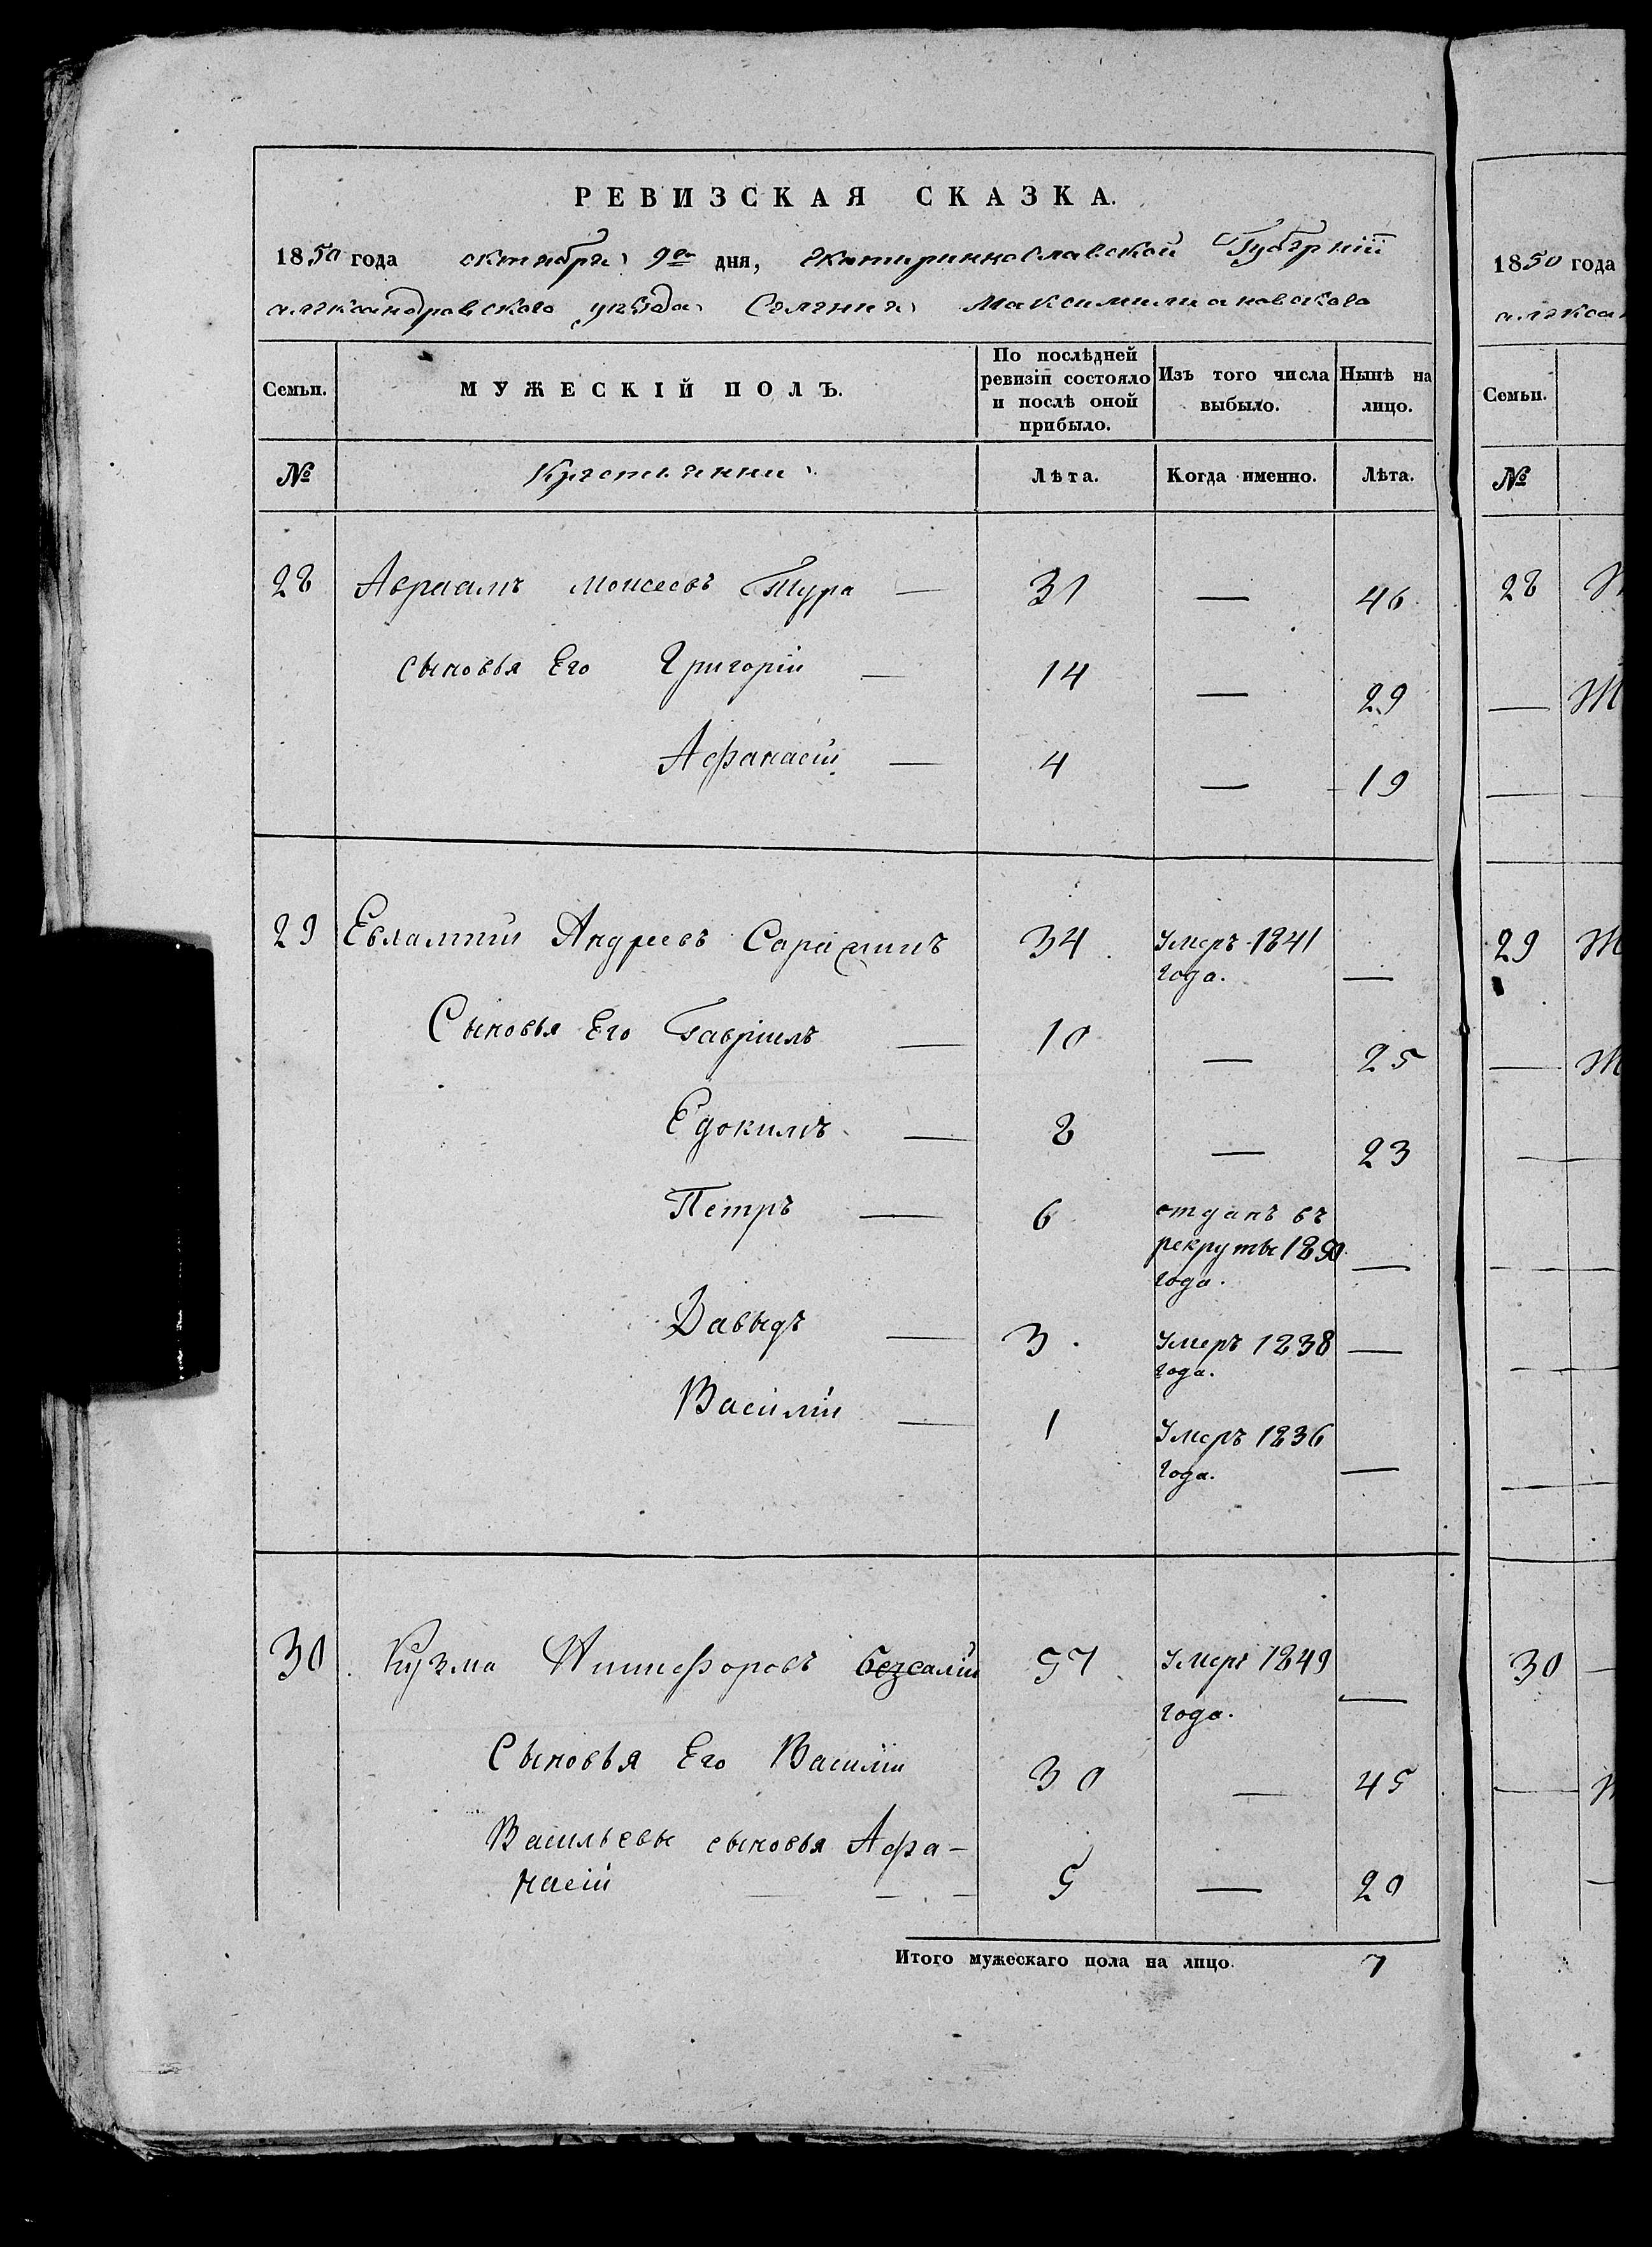 РЕВИЗСКАЯ СКАЗКА.
1850 года октября 9го дня, Екатеринославской Губерніи
александровского уѣзда Селения Максимилиановского
Семьи. МУЖЕСКІЙ ПОЛЪ. По послѣдней ревизіи состояло и послѣ оной прибыло. Изъ того числа выбыло. Нынѣ на лицо.
№ Крестьянни Лѣта. Когда именно. Лѣта.
28 Авраамъ Моисеевъ Тура — 31 — 46
сыновья Его Григорій — 14 — 29
Афанасій — 4 — 19
29 Евлампий Андреевъ 34 Умеръ 1841 года. —
Сыновья Его Гавріилъ — 10 — 25
Едокимъ — 8 — 23
Петръ — 6 отданъ въ рекруты 1850 года. —
Давыдъ — 3 Умеръ 1838 года. —
Василій — 1 Умеръ 1836 года. —
30 Кузма Никифоровъ 57 Умеръ 1849 года. —
Сыновья Его Василій 30 — 45
Васильевы сыновья Афа-
насій — — — 5 — 20
Итого мужескаго пола на лицо. 7
1850 года
алекса
Семьи.
№
28
29
30